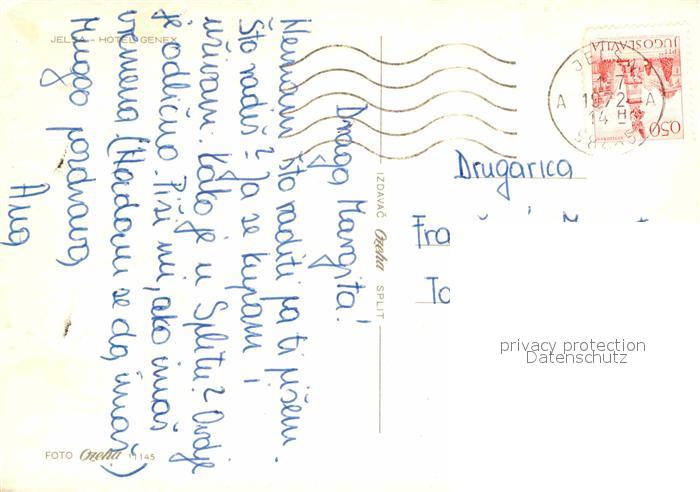 JELSA - HOTEL GENEX
Draga Margita!
Nemam što raditi pa ti pišem.
Što radiš? Ja se kupam i
uživam. Kako je u Splitu? Ovdje
je odlično. Piši mi, ako imaš
vremena. (Nadam se da imaš.)
Mnogo pozdrava,
Ana
FOTO Ozeha 11145
IZDAVAČ Ozeha SPLIT
JUGOSLAVIJA
0,50
JELSA
1972
A A
14 H
Drugarica
Fra
To
privacy protection
Datenschutz